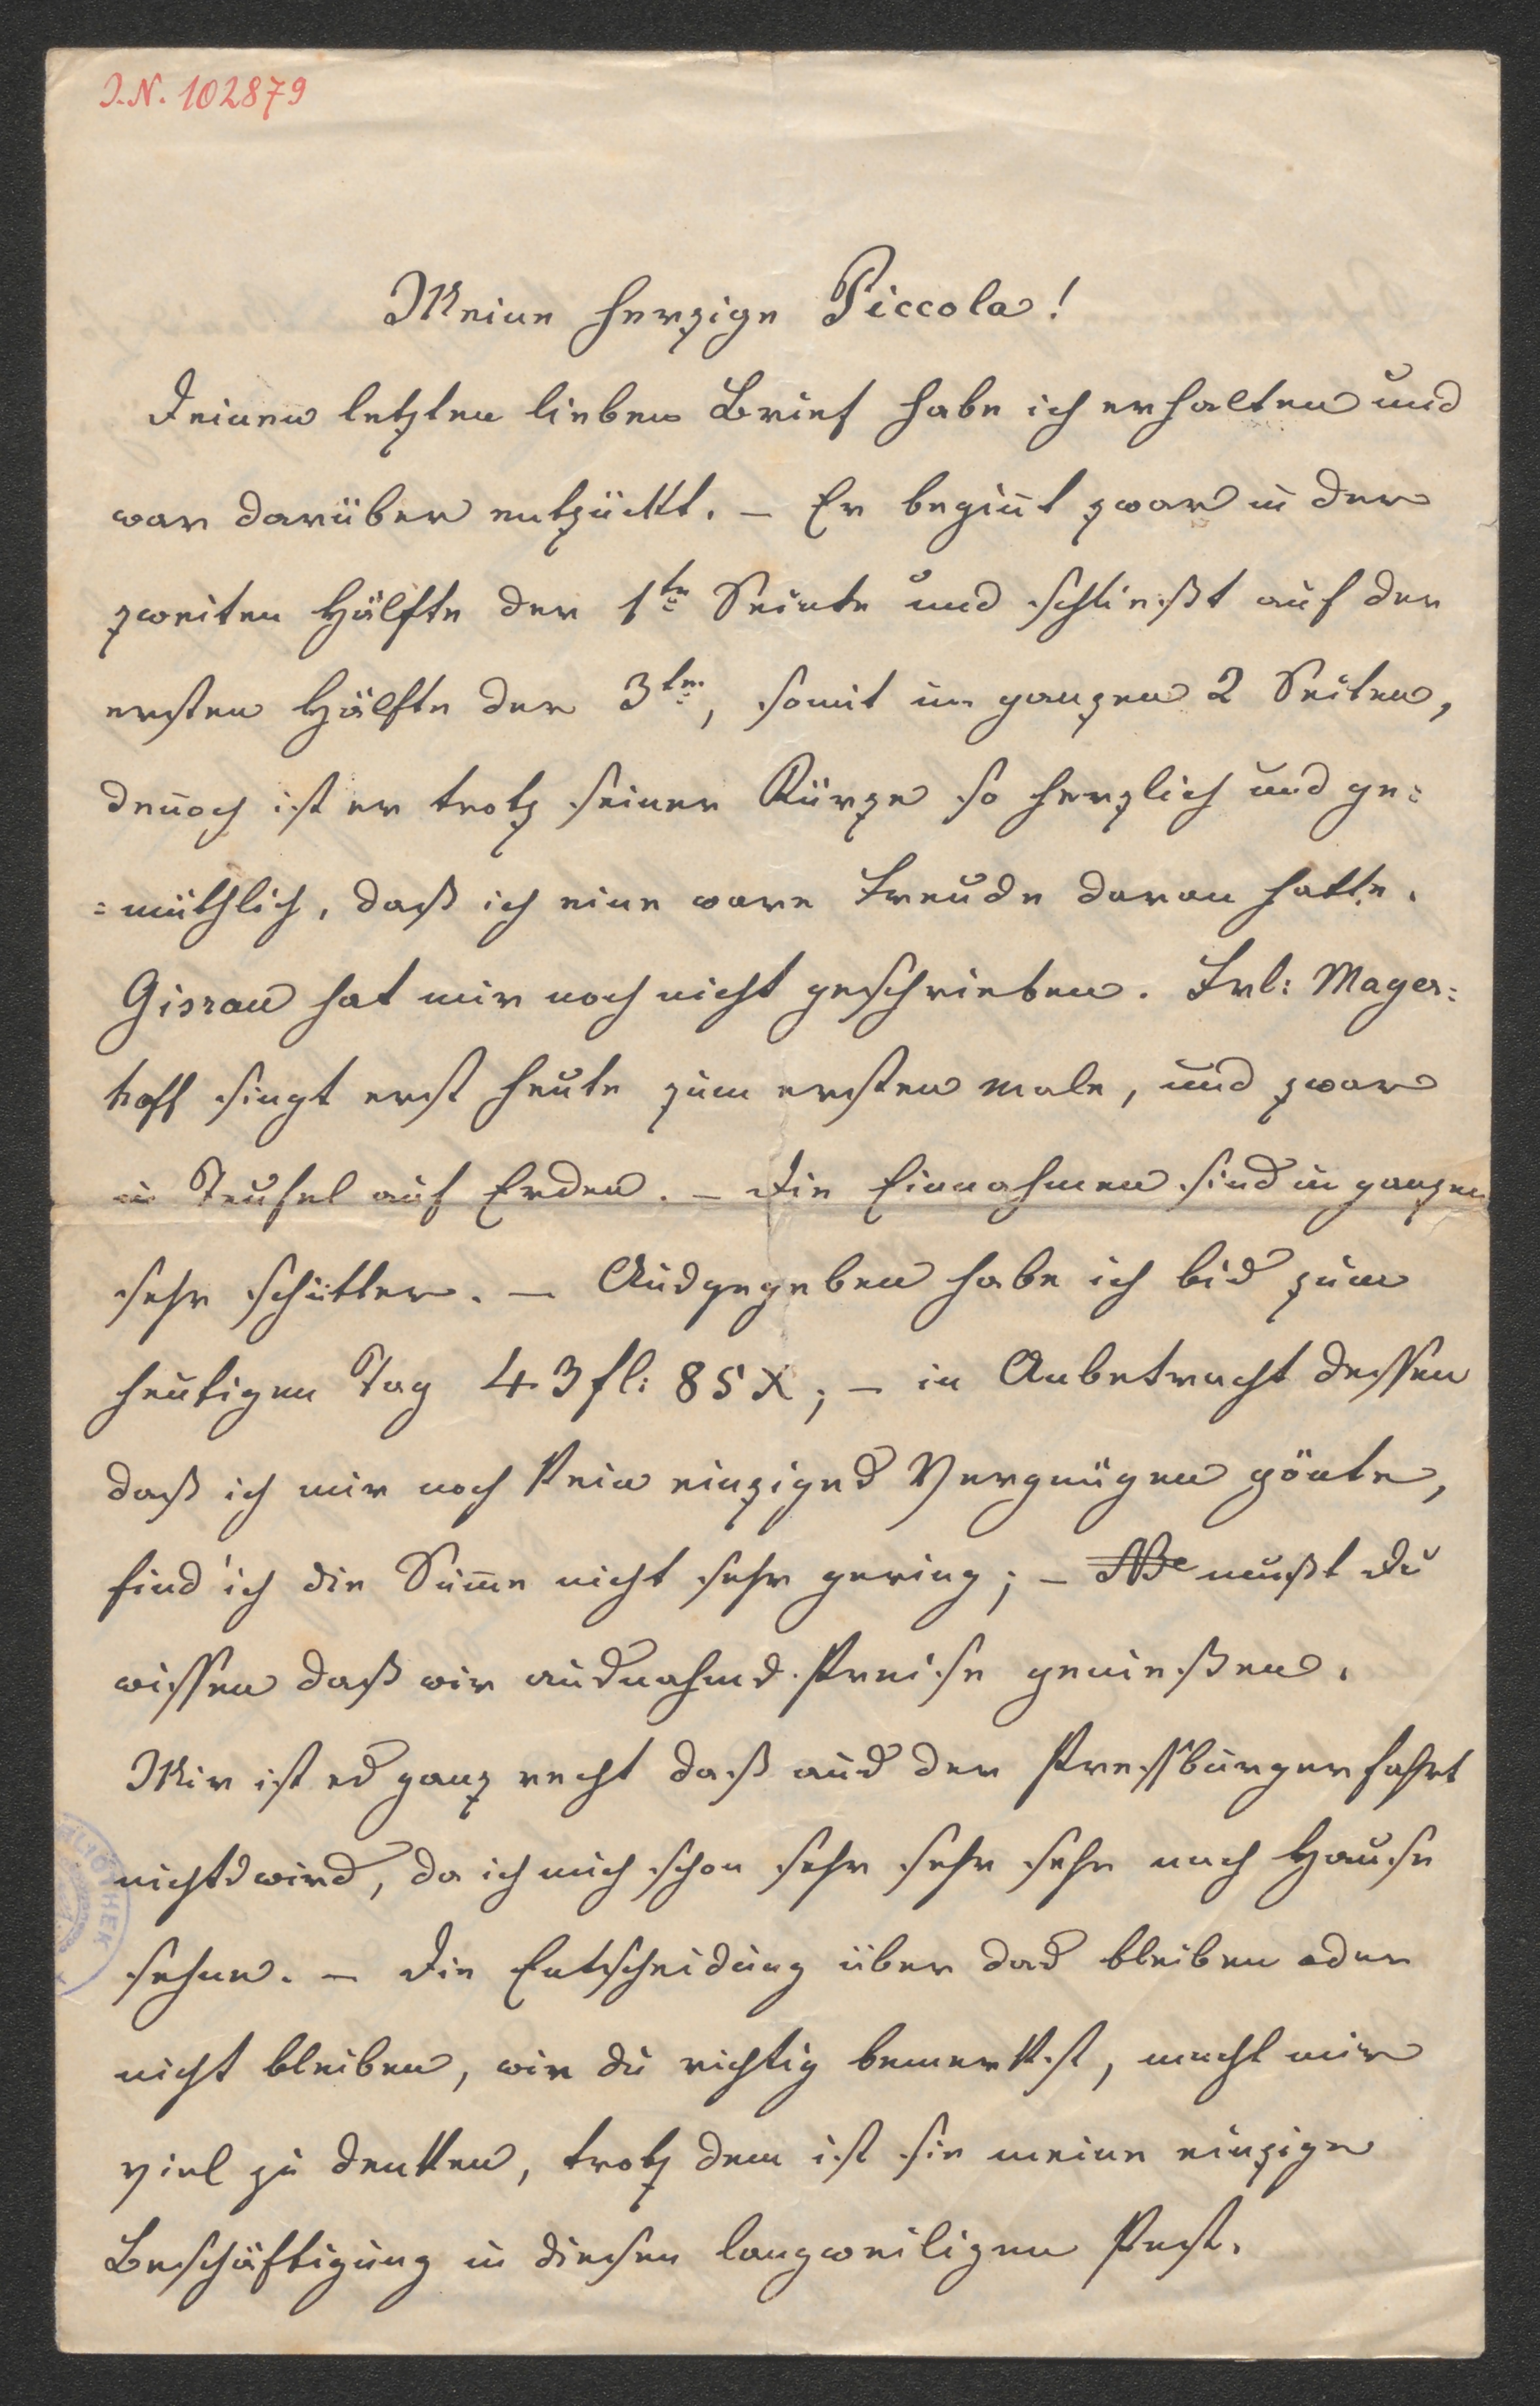 I.N. 102879
Meine herzige Piccola!
Deinen letzten lieben Brief habe ich erhalten und
war darüber entzückt. – Er begiñt zwar in der
zweiten Hälfte der 1ten Seinte und schließt auf der
ersten Hälfte der 3ten, somit im ganzen 2 Seiten,
deñoch ist er trotz seiner Kürze so herzlich und ge=
=müthlich, daß ich eine ware Freude daran hatte.
Girzau hat mir noch nicht geschrieben. Frl: Mayer=
hoff singt erst heute zum ersten male, und zwar
in Teufel auf Erden. – Die Einnahmen sind im ganzen
sehr schütter. – Ausgegeben habe ich bis zum
heutigen Tag 43 fl: 85 X; – in Anbetracht dessen
daß ich mir noch kein einziges Vergnügen gönte,
find' ich die Sum̃e nicht sehr gering; – mußt Du
wissen daß wir ausnahms-Preise genießen.
Mir ist es ganz recht daß aus der Pressburgerfahrt
nichts wird, da ich mich schon sehr sehr sehr nach Hause
sehne. – Die Entscheidung über das bleiben oder
nicht bleiben, wie du richtig bemerkst, macht mir
viel zu denken, trotz dem ist sie meine einzige
Beschäftigung in diesen langweiligen Pest.